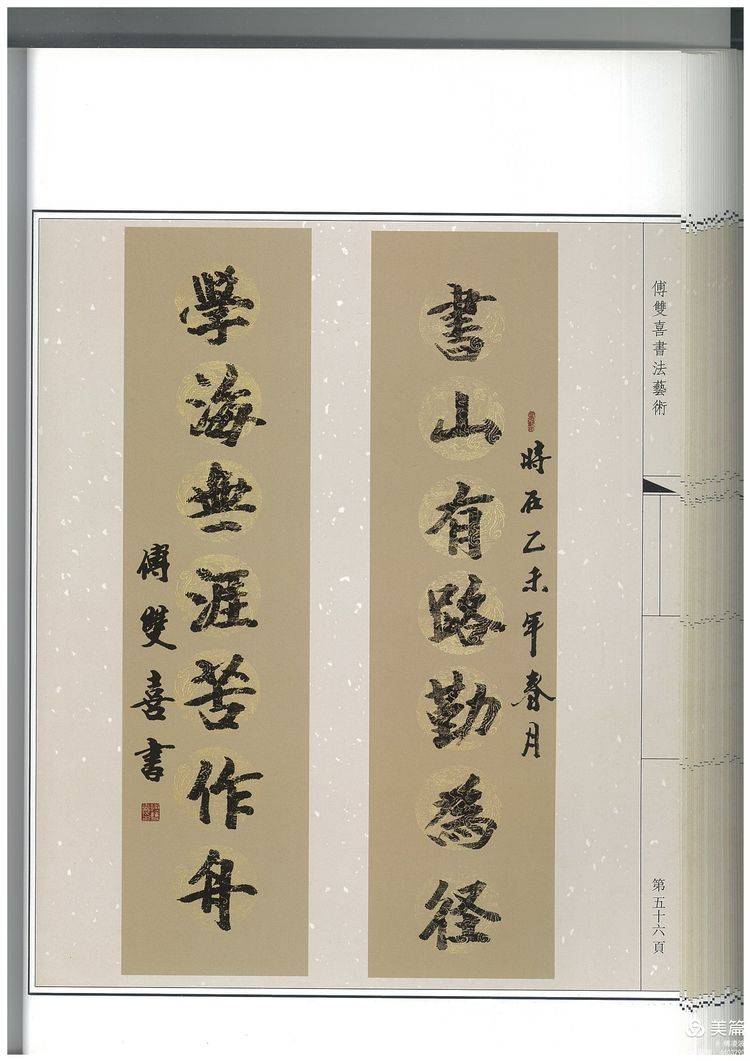 傅雙喜書法藝術
第五十六頁
時在乙未年春月
書山有路勤為径
學海無涯苦作舟
傅雙喜書
美篇